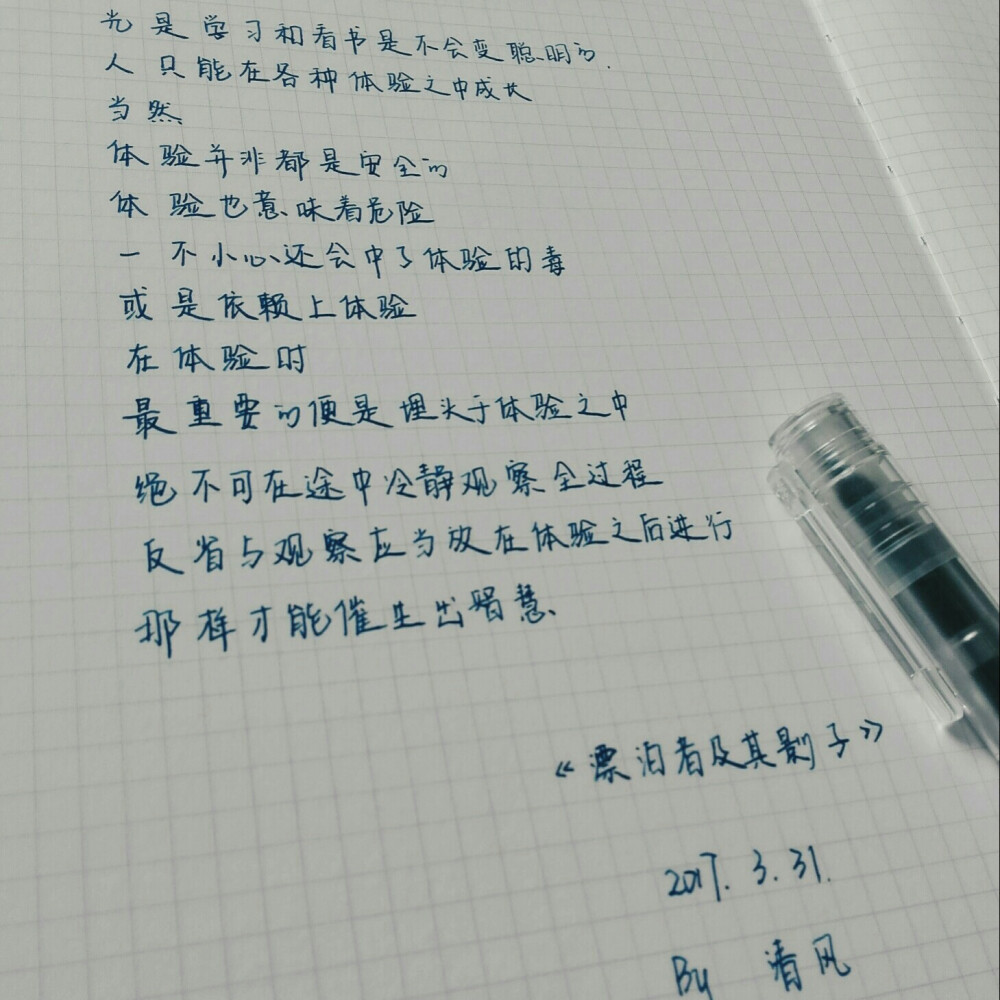 光是学习和看书是不会变聪明的.
人只能在各种体验之中成长
当然
体验并非都是安全的
体验也意味着危险
一不小心还会中了体验的毒
或是依赖上体验
在体验时
最重要的便是埋头于体验之中
绝不可在途中冷静观察全过程
反省与观察应当放在体验之后进行
那样才能催生出智慧
《漂泊者及其影子》
2017.3.31.
By 清风